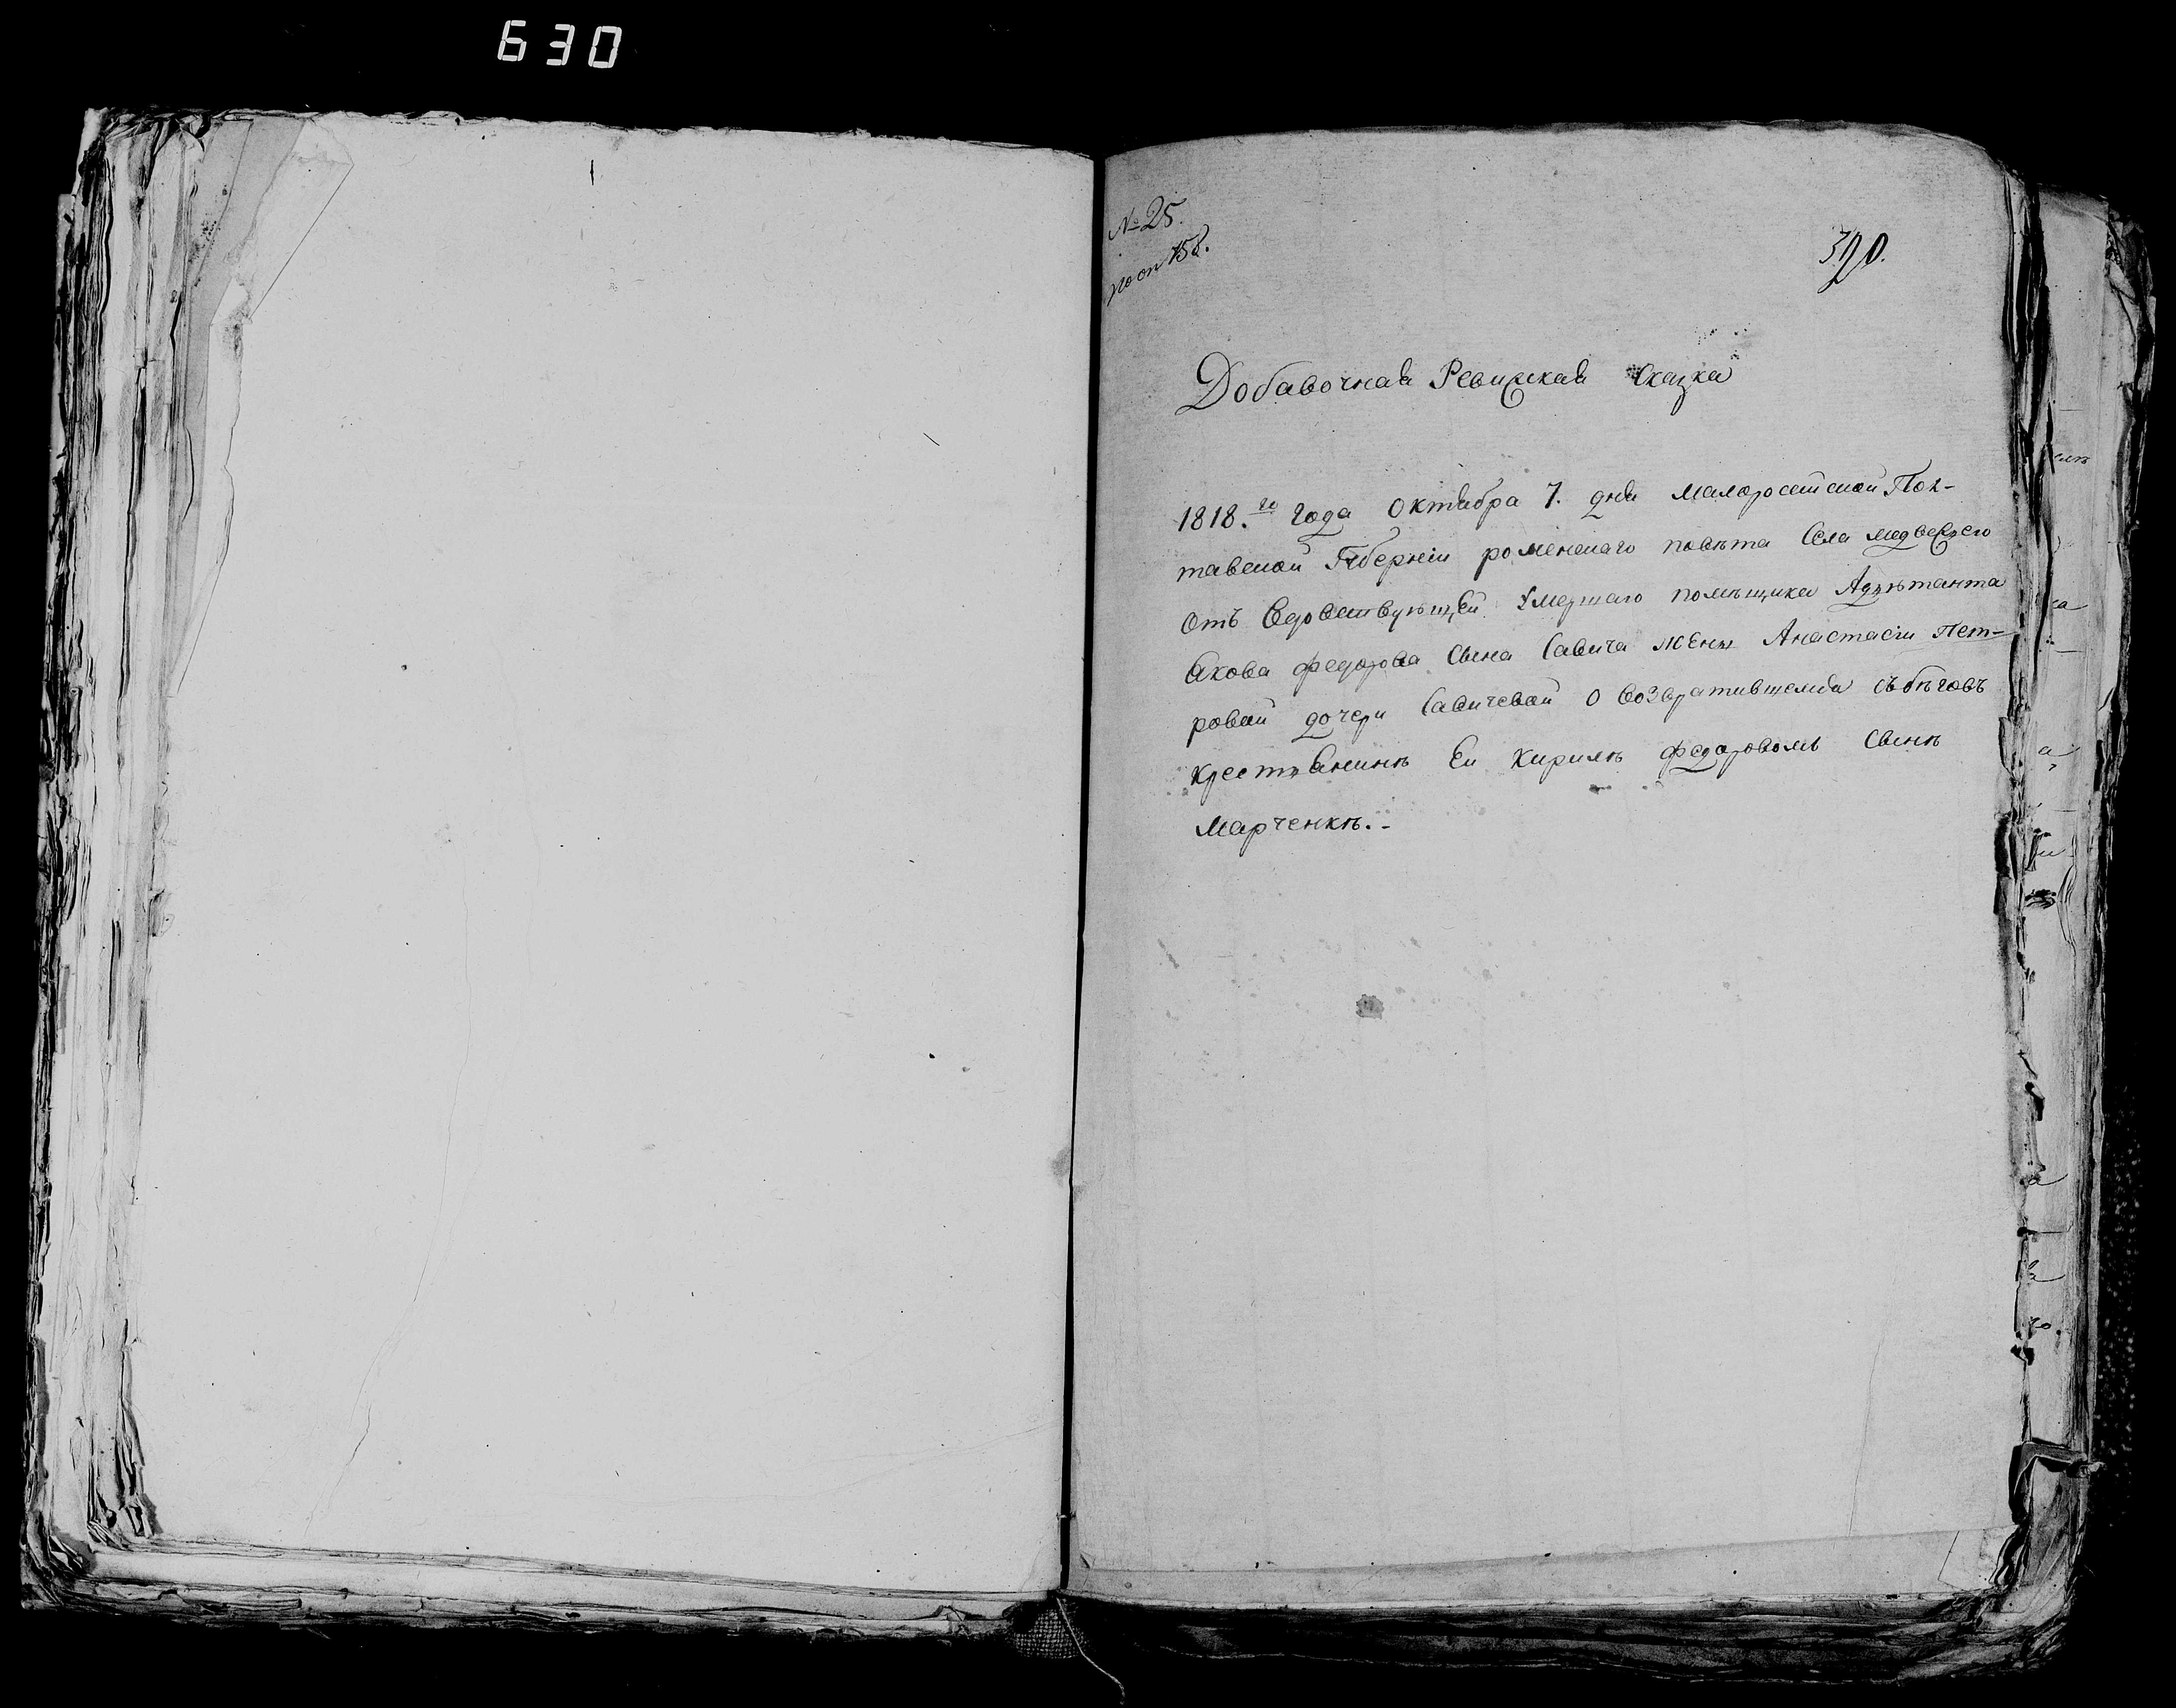 630
№ 25.
по оп 152.
390.
Добавочная Ревиская Сказка
1818.го года Октября 7. дня Малоросейской Пол-
тавской Губерніи роменскаго повѣта Села медвежего
отъ Вдовствующей Умершаго помѣщика Адъютанта
Якова федорова Сына Савича жены Анастасіи Пет-
ровой дочери Савичевой о Возвратившемся съ бѣговъ
крестьянинѣ Ей Кирилѣ федоровомъ Сынѣ
Марченкѣ.-